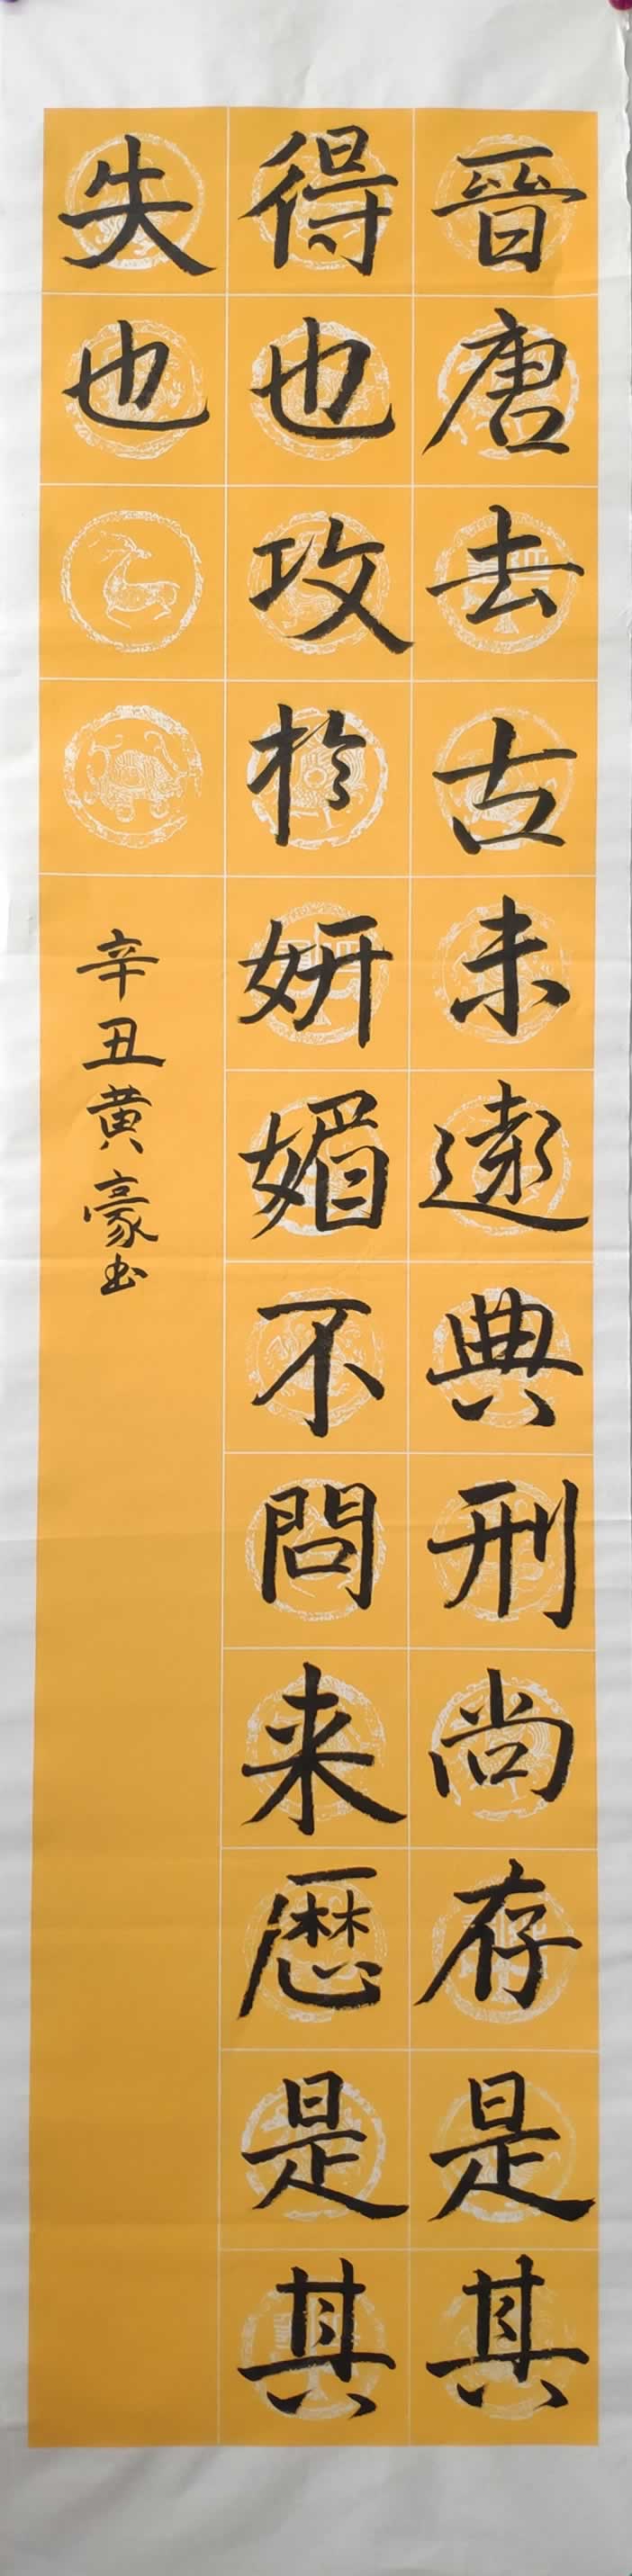 晉唐去古未遠典刑尚存是其
得也攻於妍媚不問来歷是其
失也
辛丑黄豪书